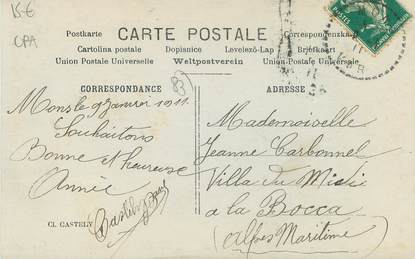 15€
CPA
CARTE POSTALE
Postkarte
Correspondenzkarte
Cartolina postale Dopisnice Levelező-Lap Briefkaart
Union Postale Universelle Weltpostverein Union Postale Universelle
CORRESPONDANCE
83
Mons le 9 Janvier 1911
Souhaitons
Bonne et heureuse
Année
CL. CASTELY
ADRESSE
Mademoiselle
Jeanne Carbonnel
Villa du Midi
a la Bocca
(Alpes Maritime)